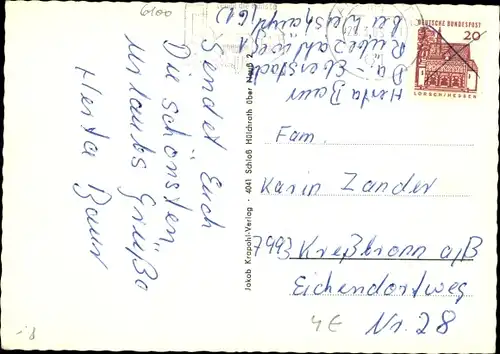 6100
Sendet Euch
Die schönsten
Urlaubs Grüße
Herta Baur
Herta Baur
Da-Eberstadt
Rübezahlweg
bei
Jakob Krapohl-Verlag · 4041 Schloß Hülchrath über Neuß 2
DEUTSCHE BUNDESPOST
20
LORSCH/HESSEN
Fam.
Karin Zander
7993 Kreßbronn a/B
Eichendorfweg
Nr. 28
4E